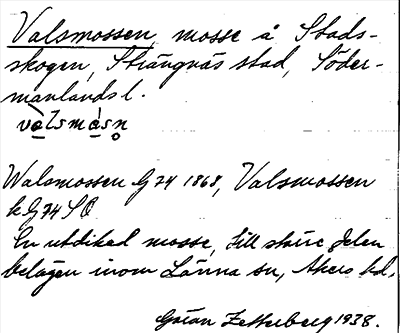 Valsmossen, mosse å Stads-
skogen, Strängnäs stad, Söder-
manlands l.
valsmàsn̥
Walsmossen G 74 1868, Valsmossen
k G 74 SO
En utdikad mosse, till större delen
belägen inom Länna sn, Åkers hd.
Göran Zetterberg 1938.